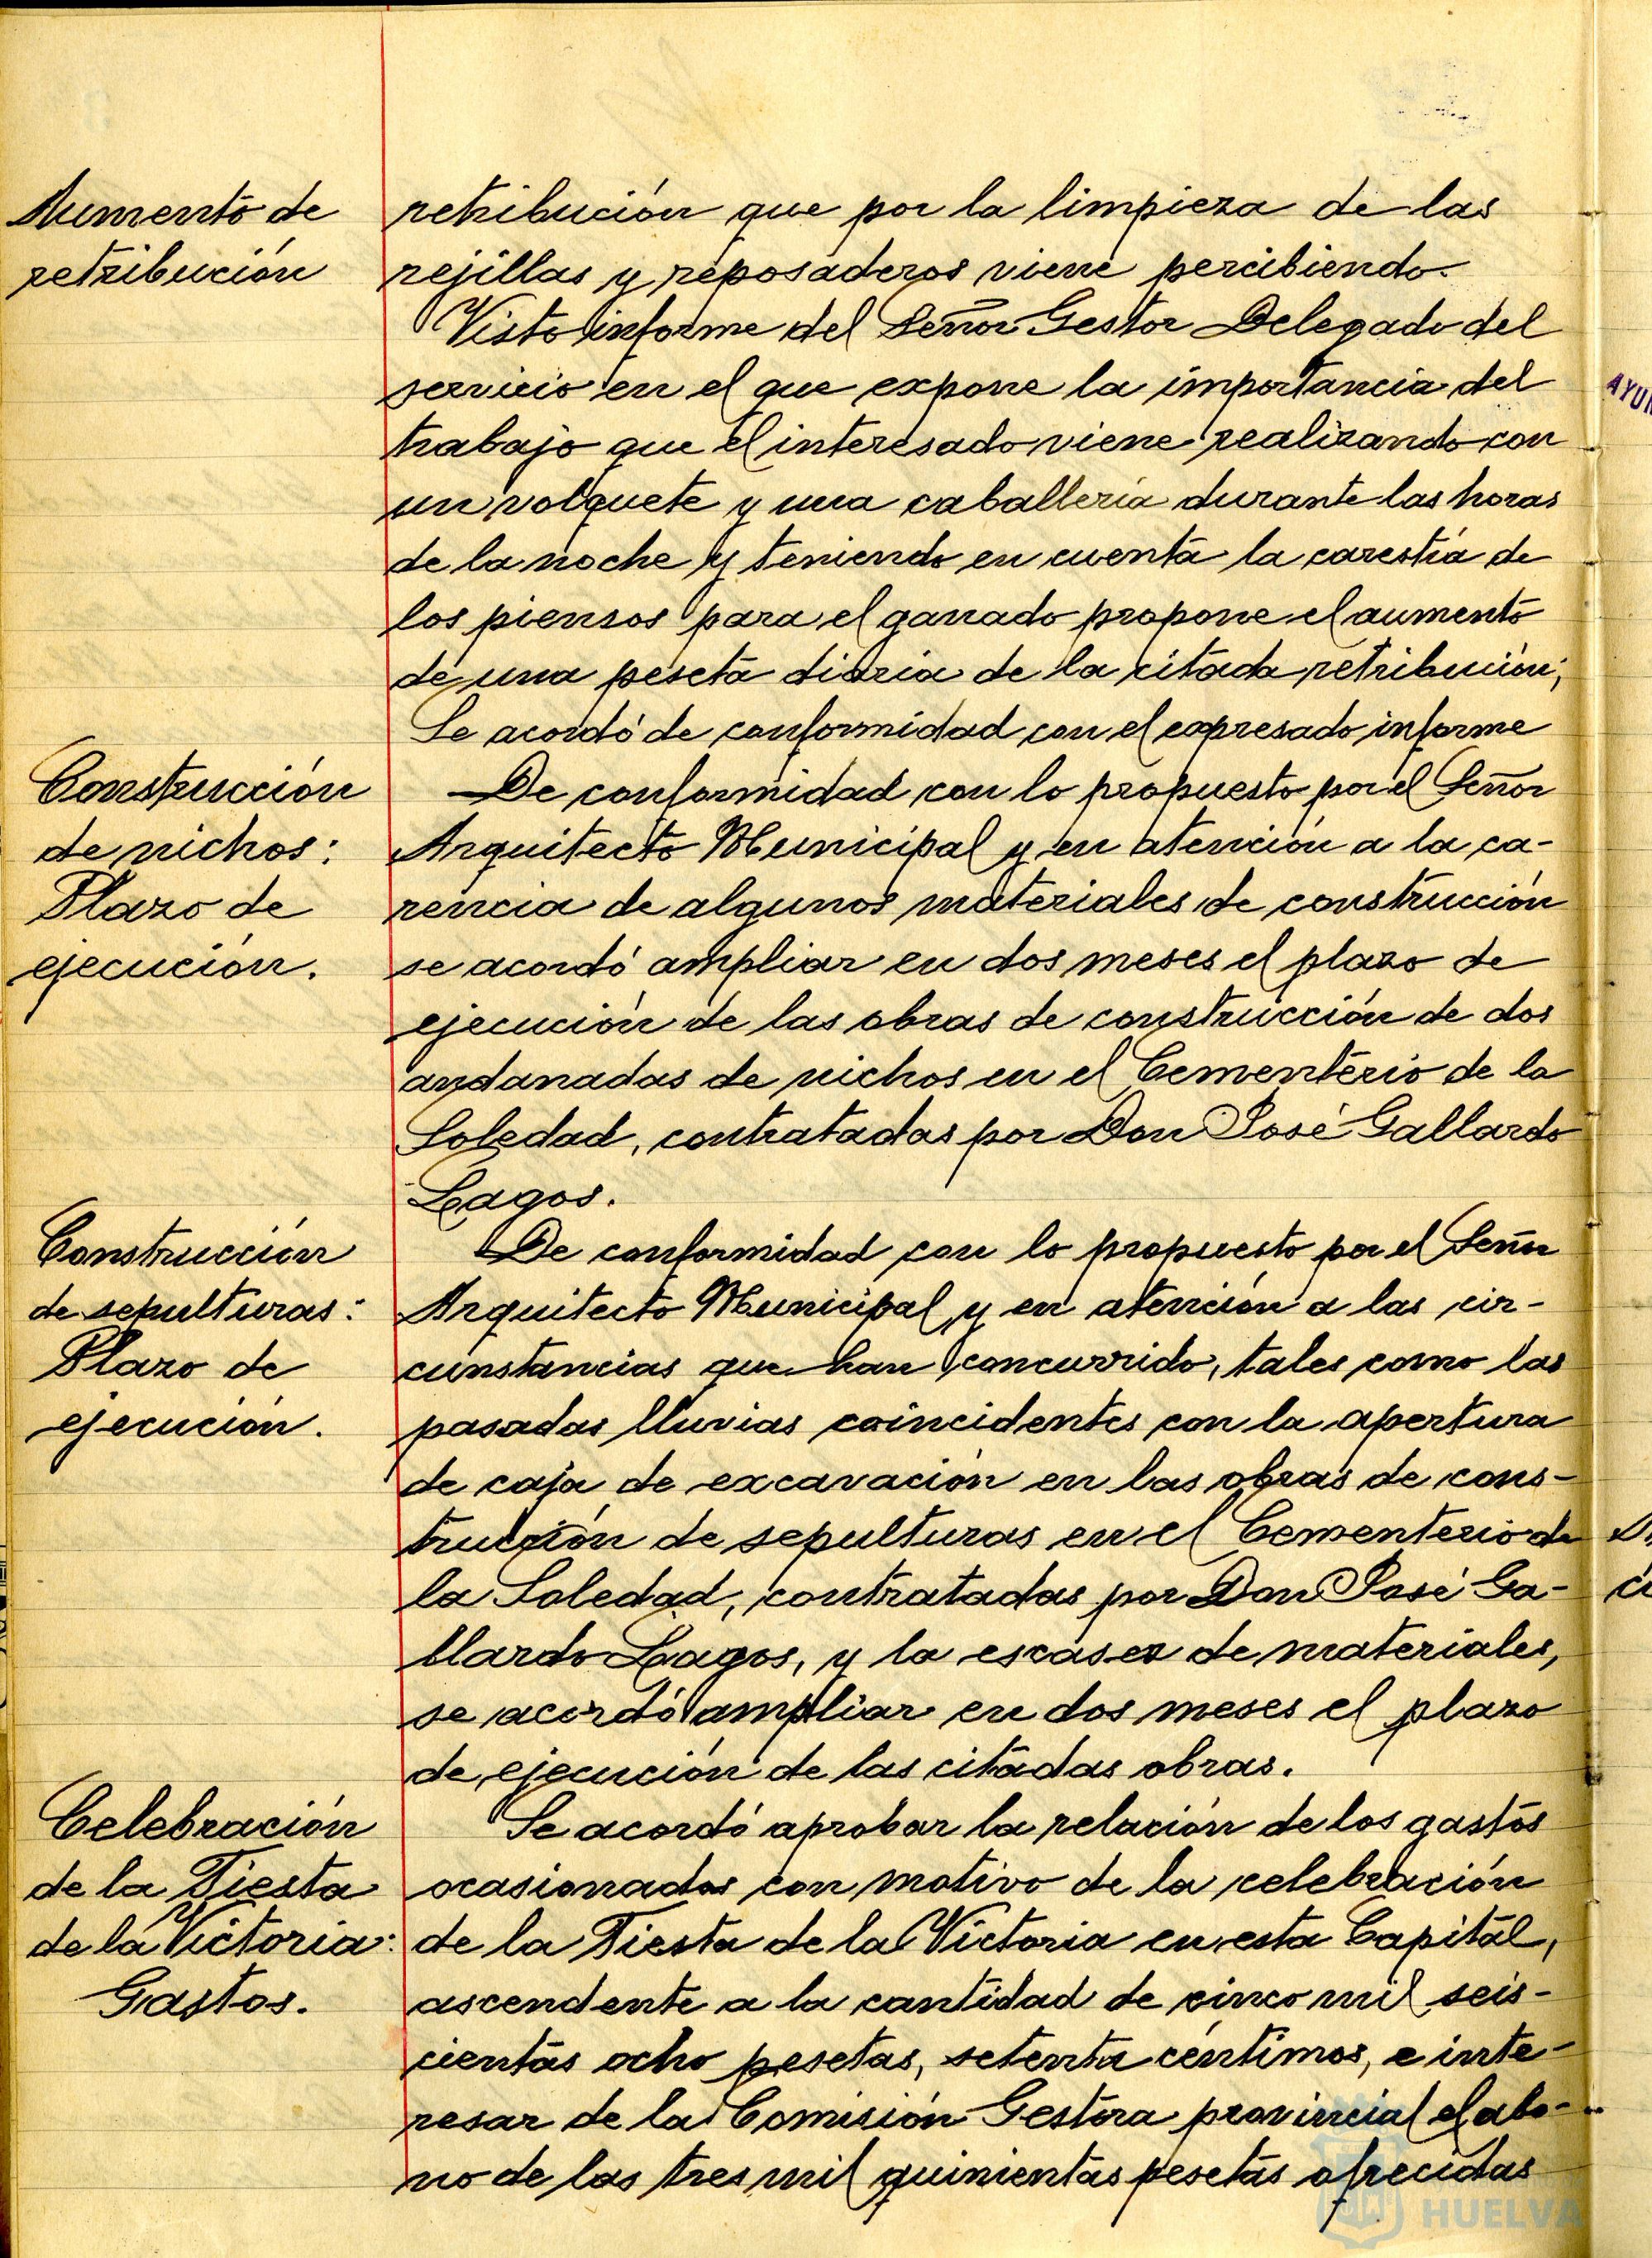 Aumento de
retribución
retribución que por la limpieza de las
rejillas y reposaderos viene percibiendo.
Visto informe del Señor Gestor Delegado del
servicio en el que expone la importancia del
trabajo que el interesado viene realizando con
un volquete y una caballería durante las horas
de la noche y teniendo en cuenta la carestía de
los piensos para el ganado propone el aumento
de una peseta diaria de la citada retribución;
Se acordó de conformidad con el expresado informe
Construcción
de nichos:
Plazo de
ejecución.
De conformidad con lo propuesto por el Señor
Arquitecto Municipal y en atención a la ca-
rencia de algunos materiales de construcción
se acordó ampliar en dos meses el plazo de
ejecución de las obras de construcción de dos
andanadas de nichos en el Cementerio de la
Soledad, contratadas por Don José Gallardo
Lagos.
Construcción
de sepulturas:
Plazo de
ejecución.
De conformidad con lo propuesto por el Señor
Arquitecto Municipal y en atención a las cir-
cunstancias que han concurrido, tales como las
pasadas lluvias coincidentes con la apertura
de caja de excavación en las obras de cons-
trucción de sepulturas en el Cementerio de
la Soledad, contratadas por Don José Ga-
llardo Lagos, y la escasez de materiales,
se acordó ampliar en dos meses el plazo
de ejecución de las citadas obras.
Celebración
de la Fiesta
de la Victoria:
Gastos.
Se acordó aprobar la relación de los gastos
ocasionados con motivo de la celebración
de la Fiesta de la Victoria en esta Capital,
ascendente a la cantidad de cinco mil seis-
cientas ocho pesetas, setenta céntimos, e inte-
resar de la Comisión Gestora provincial el abo-
no de las tres mil quinientas pesetas ofrecidas
HUELVA